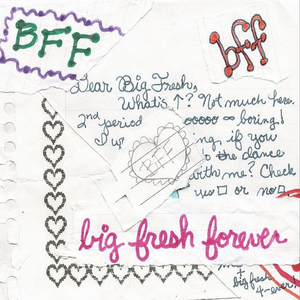 BFF
bff
Dear Big Fresh,
What's ↑? Not much here.
2nd period so boring!
I w ing, if you
the dance
BFF
with me? Check
yes □ or no □
big fresh forever
+
big fresh
4-ever!